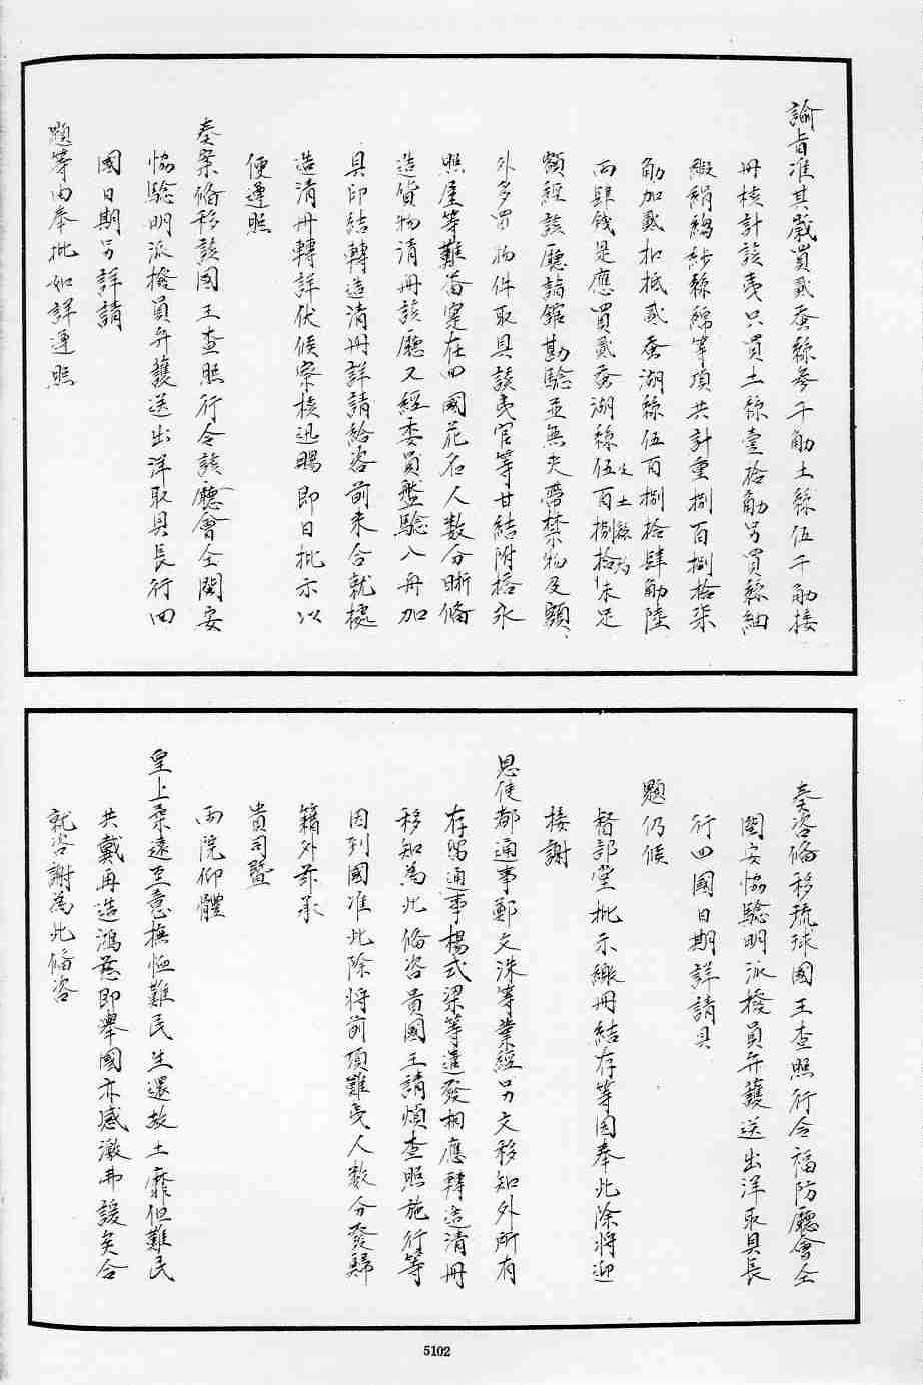 諭旨准其歲買貳蚕絲參千觔土絲伍千觔接
冊核計該夷只買土絲壹拾觔另買絲紬
緞絹縐紗絲綿等項共計重捌百捌拾柒
觔加貳扣抵貳蚕湖絲伍百捌拾肆觔陸
両肆錢是應買貳蚕湖絲伍百捌拾未足
額經該廳詣舘勘驗並無夹帶禁物及額
外多買物件取具該夷官等甘結附搭永
照屋等難番寔在回國花名人數分晰俻
造貨物清冊該廳又經委員盤驗入舟加
具印結轉造清冊詳請給咨前来合就據
造清冊轉詳伏候察核迅賜即日批示以
便遵照
奏案俻移該國王查照行令該廳會仝閩安
恊驗明派撥員弁護送出洋取具長行回
國日期另詳請
題等由奉批如詳遵照
奏咨俻移琉球國王查照行令福防廳會仝
閩安恊驗明派撥員弁護送出洋取具長
行回國日期詳請具
題仍候
督部堂批示繳冊結存等因奉此除將迎
接謝
恩使都通事鄭文洙等業經另文移知外所有
存留通事楊式梁等遣發相應轉造清冊
移知為此俻咨貴國王請煩查照施行等
因到國准此除將前項難夷人數分發歸
籍外茲承
貴司暨
両院仰體
皇上柔遠至意撫恤難民生還故土靡但難民
共戴再造鴻慈即舉國亦感激弗諼矣合
就咨謝為此俻咨
5102